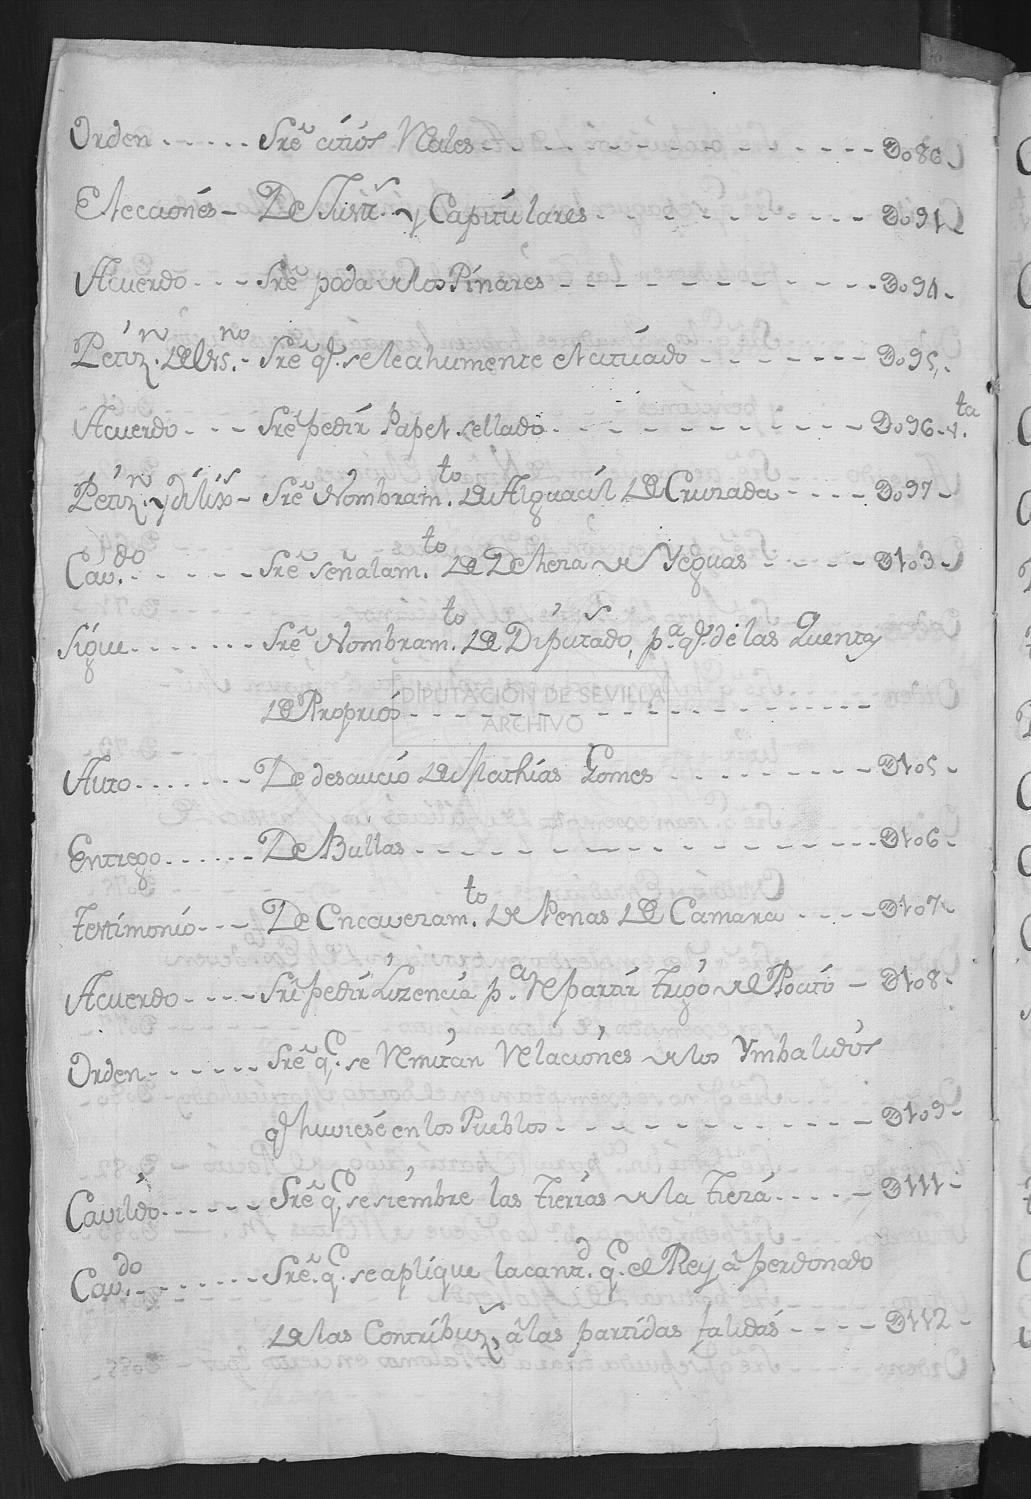 Orden ...... Sre citios Rles - - - - - - Do86
Elecciones - De Justs. y Capitulares - - - - Do91
Acuerdo - - - Sre poda de los Pinares - - - - Do94 -
Petizn. del esno. - Sre q. se le ahumente el situado - - - - Do95 -
Acuerdo - - - - Sre pedir Papel sellado - - - - Do96 - vta.
Petizn. y dilixs - Sre Nombramto. de Alguacil de Cruzada - - - - Do97 -
Cavdo. - - - - - Sre señalamto. de Dehesa de Yeguas - - - - D1o3 -
Sigue ....... Sre Nombramto. de Diputado, pa. q. de las Quentas
de Propios - - - - - -
DIPUTACIÓN DE SEVILLA
ARCHIVO
Auto ....... De desaucio de Mathias Gomes - - - - D1o5 -
Entrego ...... De Bullas - - - - - - D1o6 -
Testimonio - - - De Encavezamto. de Penas de Camara - - - - D1o7 -
Acuerdo - - - - Sre pedir Lizencia pa. Repartir trigo del Pocito - D1o8 -
Orden - - - - - - Sre q. se Remitan Relaciones de los Ymbalidos
q. huviese en los Pueblos - - - - - - D1o9 -
Cavildo ...... Sre q. se siembre las tierras de la tiera .... - D111 -
Cavdo. - - - - - Sre. q. se aplique la cantd. q. el Rey à perdonado
de las Contribuzs. à las partidas falidas - - - - D112 -